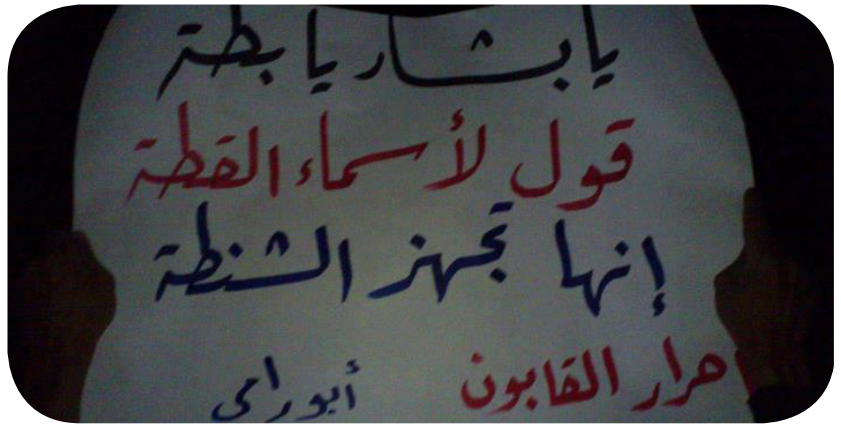 يا بشار يا بطة
قول لأسماء القطة
إنها تجهز الشنطة
احرار القابون أبو رامي